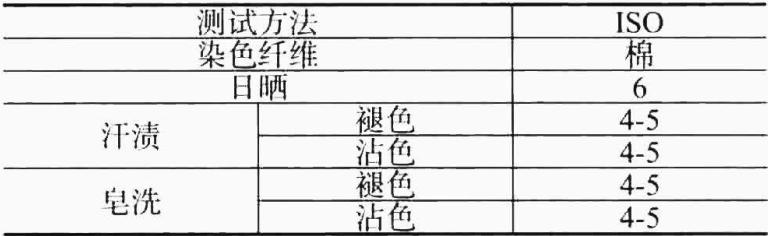 测试方法 ISO
染色纤维 棉
日晒 6
汗渍 褪色 4-5
沾色 4-5
皂洗 褪色 4-5
沾色 4-5